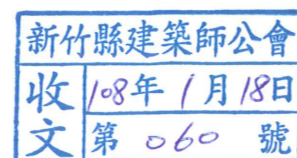 新竹縣建築師公會
收文
108年1月18日
第060號